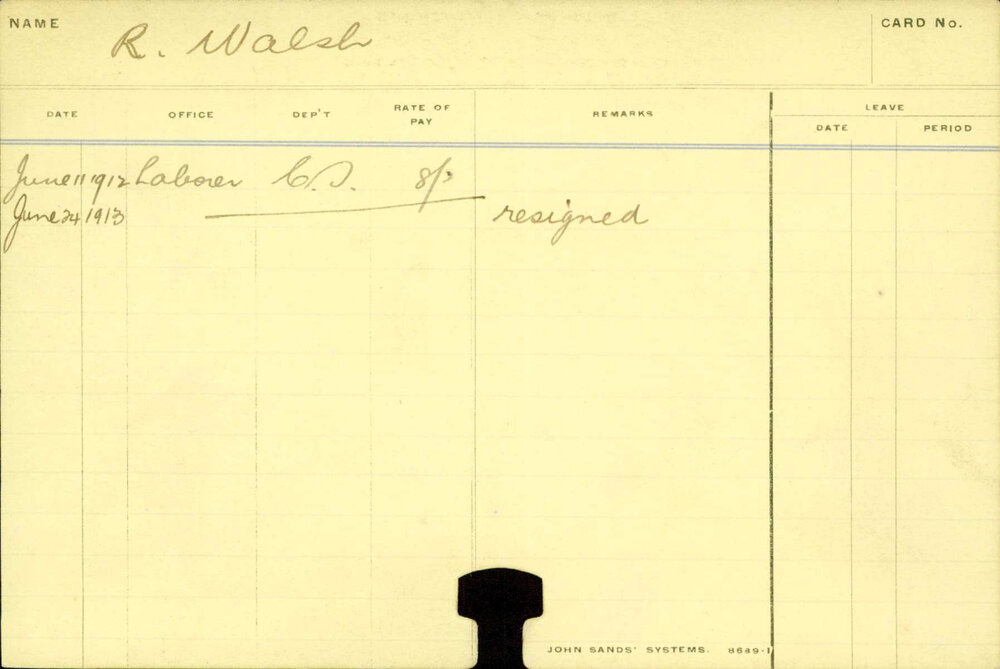 NAME R. Walsh CARD No.
DATE OFFICE DEP'T RATE OF PAY REMARKS LEAVE
DATE PERIOD
June 11 1912 Laborer C.S. 8/-
June 24 1913 resigned
JOHN SANDS' SYSTEMS. 8689-1